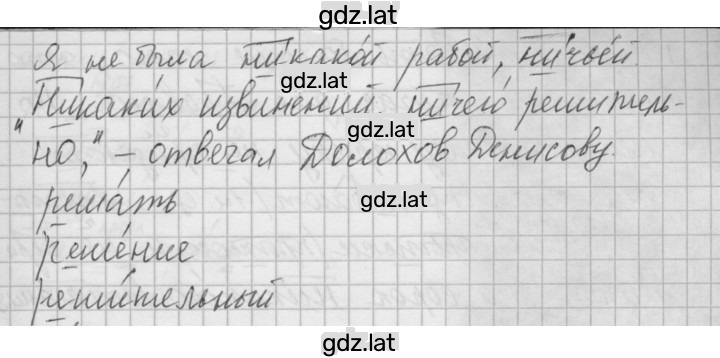 gdz.lat
Я не была никакой рабой, ничьей.
gdz.lat
"Никаких извинений. ничего решитель-
gdz.lat
но," – отвечал Долохов Денисову.
решать
gdz.lat
решение
решительный
gdz.lat
gdz.lat